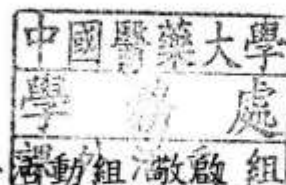 中國醫藥大學
學 處
活動組 敬啟 組